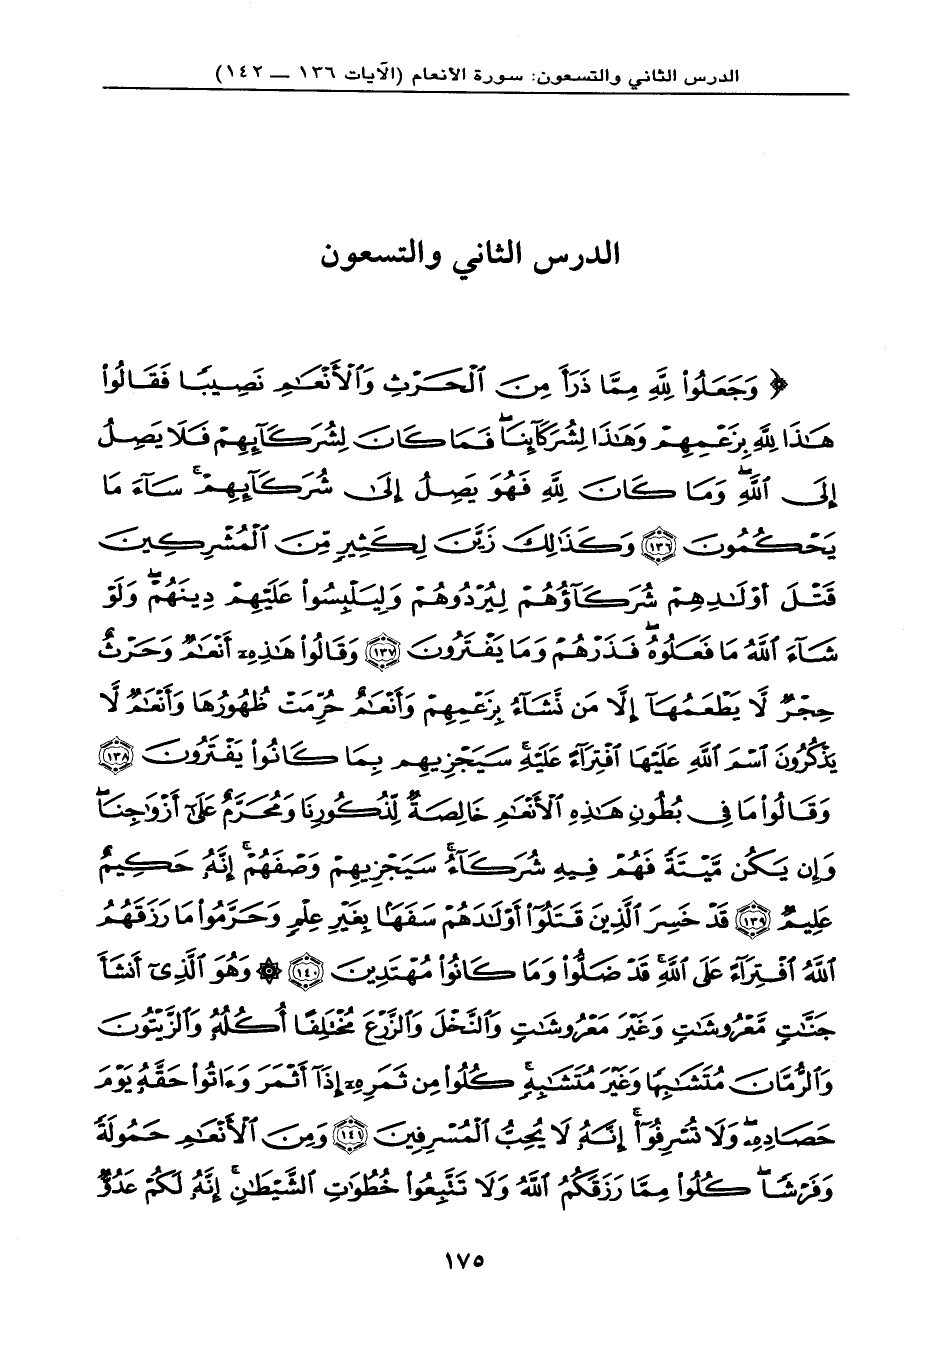 الدرس الثاني والتسعون: سورة الانعام (الآيات ١٣٦ — ١٤٢)
الدرس الثاني والتسعون
﴿ وَجَعَلُوا۟ لِلَّهِ مِمَّا ذَرَأَ مِنَ ٱلْحَرْثِ وَٱلْأَنْعَٰمِ نَصِيبًا فَقَالُوا۟
هَٰذَا لِلَّهِ بِزَعْمِهِمْ وَهَٰذَا لِشُرَكَآئِنَا ۖ فَمَا كَانَ لِشُرَكَآئِهِمْ فَلَا يَصِلُ
إِلَى ٱللَّهِ ۖ وَمَا كَانَ لِلَّهِ فَهُوَ يَصِلُ إِلَىٰ شُرَكَآئِهِمْ ۗ سَآءَ مَا
يَحْكُمُونَ ١٣٦ وَكَذَٰلِكَ زَيَّنَ لِكَثِيرٍ مِّنَ ٱلْمُشْرِكِينَ
قَتْلَ أَوْلَٰدِهِمْ شُرَكَآؤُهُمْ لِيُرْدُوهُمْ وَلِيَلْبِسُوا۟ عَلَيْهِمْ دِينَهُمْ ۖ وَلَوْ
شَآءَ ٱللَّهُ مَا فَعَلُوهُ ۖ فَذَرْهُمْ وَمَا يَفْتَرُونَ ١٣٧ وَقَالُوا۟ هَٰذِهِۦٓ أَنْعَٰمٌ وَحَرْثٌ
حِجْرٌ لَّا يَطْعَمُهَآ إِلَّا مَن نَّشَآءُ بِزَعْمِهِمْ وَأَنْعَٰمٌ حُرِّمَتْ ظُهُورُهَا وَأَنْعَٰمٌ لَّا
يَذْكُرُونَ ٱسْمَ ٱللَّهِ عَلَيْهَا ٱفْتِرَآءً عَلَيْهِ ۚ سَيَجْزِيهِم بِمَا كَانُوا۟ يَفْتَرُونَ ١٣٨
وَقَالُوا۟ مَا فِى بُطُونِ هَٰذِهِ ٱلْأَنْعَٰمِ خَالِصَةٌ لِّذُكُورِنَا وَمُحَرَّمٌ عَلَىٰٓ أَزْوَٰجِنَا ۖ
وَإِن يَكُن مَّيْتَةً فَهُمْ فِيهِ شُرَكَآءُ ۚ سَيَجْزِيهِمْ وَصْفَهُمْ ۚ إِنَّهُۥ حَكِيمٌ
عَلِيمٌ ١٣٩ قَدْ خَسِرَ ٱلَّذِينَ قَتَلُوٓا۟ أَوْلَٰدَهُمْ سَفَهًۢا بِغَيْرِ عِلْمٍ وَحَرَّمُوا۟ مَا رَزَقَهُمُ
ٱللَّهُ ٱفْتِرَآءً عَلَى ٱللَّهِ ۚ قَدْ ضَلُّوا۟ وَمَا كَانُوا۟ مُهْتَدِينَ ١٤٠ ۞ وَهُوَ ٱلَّذِىٓ أَنشَأَ
جَنَّٰتٍ مَّعْرُوشَٰتٍ وَغَيْرَ مَعْرُوشَٰتٍ وَٱلنَّخْلَ وَٱلزَّرْعَ مُخْتَلِفًا أُكُلُهُۥ وَٱلزَّيْتُونَ
وَٱلرُّمَّانَ مُتَشَٰبِهًا وَغَيْرَ مُتَشَٰبِهٍ ۚ كُلُوا۟ مِن ثَمَرِهِۦٓ إِذَآ أَثْمَرَ وَءَاتُوا۟ حَقَّهُۥ يَوْمَ
حَصَادِهِۦ ۖ وَلَا تُسْرِفُوٓا۟ ۚ إِنَّهُۥ لَا يُحِبُّ ٱلْمُسْرِفِينَ ١٤١ وَمِنَ ٱلْأَنْعَٰمِ حَمُولَةً
وَفَرْشًا ۚ كُلُوا۟ مِمَّا رَزَقَكُمُ ٱللَّهُ وَلَا تَتَّبِعُوا۟ خُطُوَٰتِ ٱلشَّيْطَٰنِ ۚ إِنَّهُۥ لَكُمْ عَدُوٌّ
١٧٥